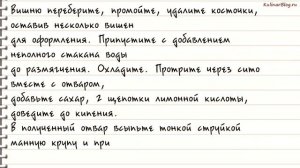 KulinarBlog.ru
Вишню переберите, промойте, удалите косточки,
оставив несколько вишен
для оформления. Припустите с добавлением
неполного стакана воды
до размягчения. Охладите. Протрите через сито
вместе с отваром,
добавьте сахар, 2 щепотки лимонной кислоты,
доведите до кипения.
В полученный отвар всыпьте тонкой струйкой
манную крупу и при